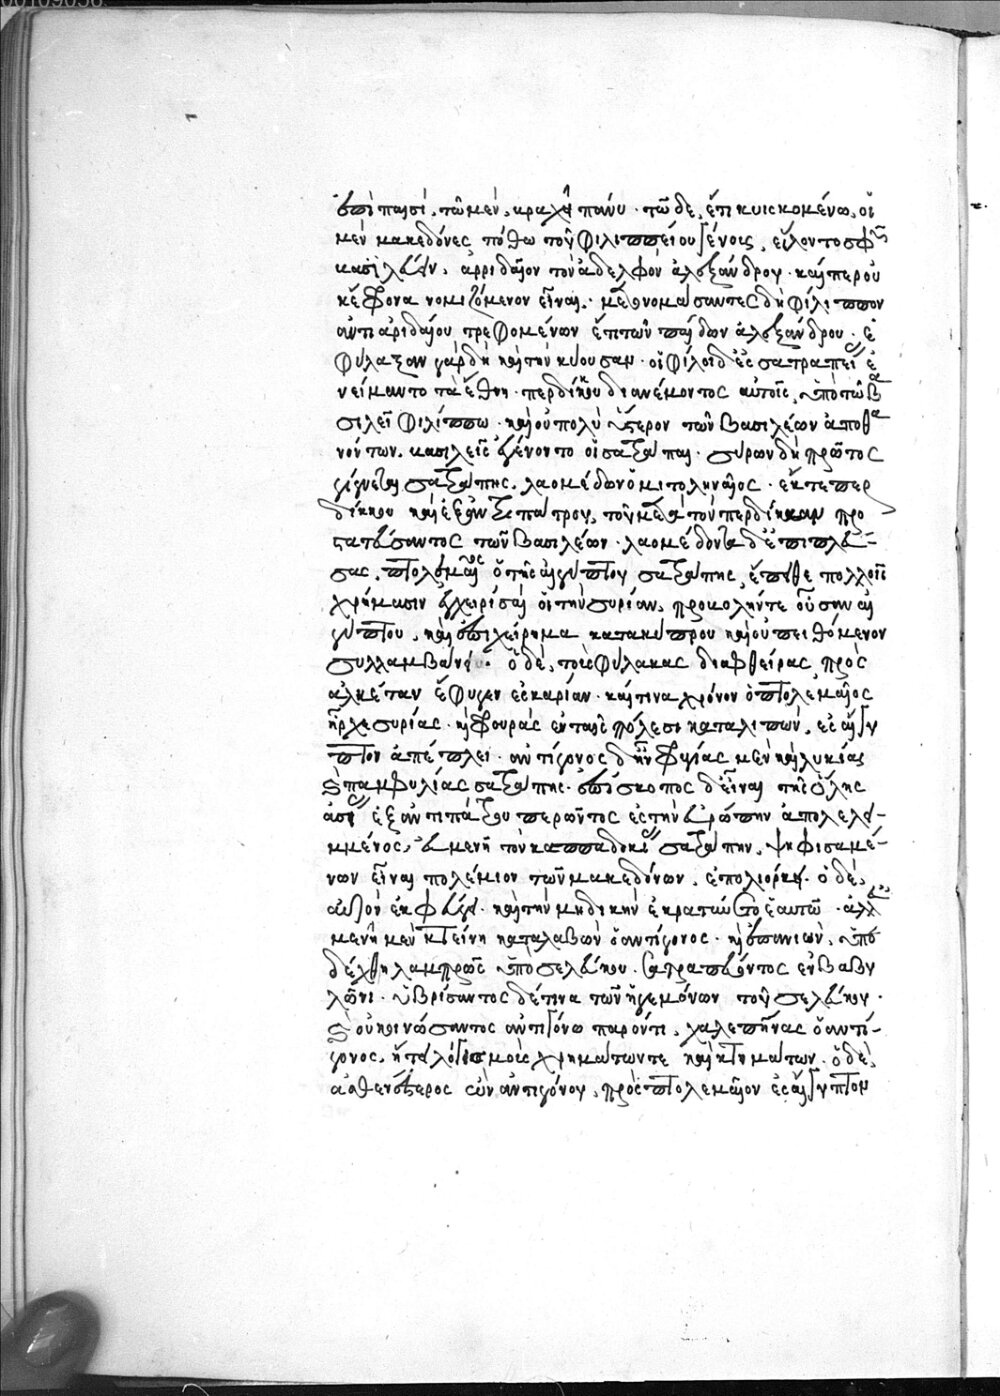 ἐπὶ παισί, τῷ μὲν, βραχεῖ πάνυ· τῷ δὲ, ἔτι κυισκομένῳ, οἱ
μὲν μακεδόνες πόθῳ τοῦ φιλιππείου γένους, εἵλοντο σφῶν
βασιλεύειν, ἀρριδαῖον τὸν ἀδελφὸν ἀλεξάνδρου· καίπερ οὐ
κ ἔμφρονα νομιζόμενον εἶναι· μετονομάσαντες δὴ φίλιππον
ἀντὶ ἀριδαίου τρεφομένων ἔτι τῶν παίδων ἀλεξάνδρου· ἐ
φύλαξαν γὰρ δὴ καὶ τὴν κύουσαν· οἱ φίλοι δ ἐς σατραπείας ἐ
νείμαντο τὰ ἔθνη· περδίκκου διανέμοντος αὐτοῖς, ὑπὸ τῷ βα
σιλεῖ φιλίππῳ· καὶ οὐ πολὺ ὕστερον τῶν βασιλέων ἀποθα
νόντων, βασιλεῖς ἐγένοντο οἱ σατράπαι· σύρων δὴ πρῶτος
γίγνεται σατράπης, λαομέδων ὁ μιτοληναῖος· ἔκ τε περ
δίκκου καὶ ἐξ ἀντιπάτρου, τοῦ μετὰ τὸν περδίκκαν προ
στατεύσαντος τῶν βασιλέων· λαομέδοντα δ ἐπιπλεύ-
σας, πτολεμαῖος ὁ τῆς αἰγύπτου σατράπης, ἔπειθε πολλοῖς
χρήμασιν ἐγχειρίσαι οἱ τὴν συρίαν, προβολήν τε οὖσαν αἰ
γύπτου, καὶ ἐπιχείρημα κατὰ κύπρου καὶ οὐ πειθόμενον
συλλαμβάνει· ὁ δὲ, τοὺς φύλακας διαφθείρας πρὸς
ἀλκέταν ἔφυγεν ἐς καρίαν· καί τινα χρόνον ὁ πτολεμαῖος
ἦρχε συρίας· καὶ φρουρὰς ἐν ταῖς πόλεσι καταλιπὼν, ἐς αἴγυ
πτον ἀπέπλει· ἀντίγονος δ ἦν φρυγίας μὲν καὶ λυκίας
καὶ παμφυλίας σατράπης· ἐπίσκοπος δ εἶναι τῆς ὅλης
ἀσίας ἐξ ἀντιπάτρου περῶντος ἐς τὴν εὐρώπην ἀπολελει-
μμένος, εὐμενῆ τὸν καππαδοκίας σατράπην, ψηφισαμέ-
νων εἶναι πολέμιον τῶν μακεδόνων, ἐπολιόρκει· ὁ δὲ,
αὐτὸν ἐκφεύγει· καὶ τὴν μηδικὴν ἐκρατύνετο ἑαυτῷ· ἀλλ εὐ
μενῆ μὲν κτείνει καταλαβὼν ὁ ἀντίγονος· καὶ ἐπανιὼν, ὑπε
δέχθη λαμπρῶς ὑπὸ σελεύκου, σατραπεύοντος ἐν βαβυ
λῶνι· ὑβρίσαντος δέ τινα τῶν ἡγεμόνων τοῦ σελεύκου·
καὶ οὐ κοινώσαντος ἀντιγόνῳ παρόντι, χαλεπήνας ὁ ἀντί-
γονος, ᾔτει λογισμοὺς χρημάτων τε καὶ κτημάτων· ὁ δὲ,
ἀσθενέστερος ὢν ἀντιγόνου, πρὸς πτολεμαῖον ἐς αἴγυπτον